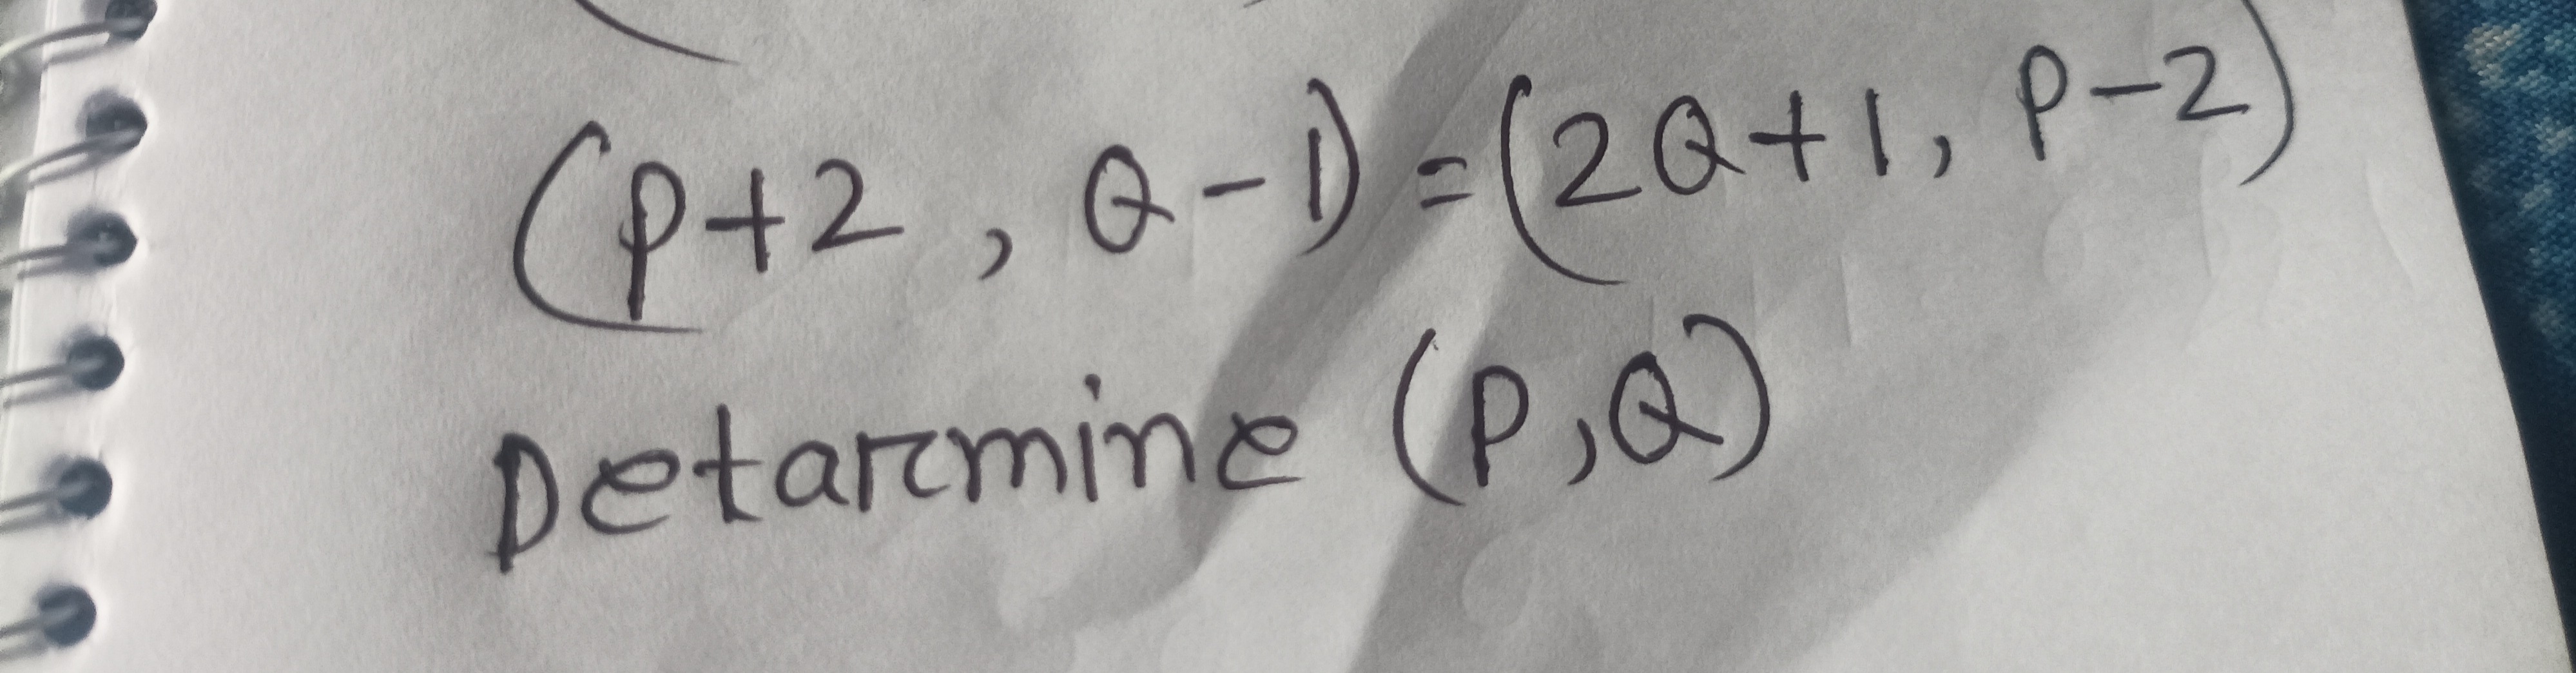 (P+2, Q-1) = (2Q+1, P-2)
Detarmine (P,Q)